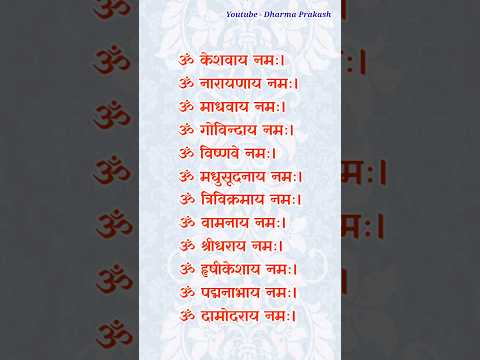 Youtube - Dharma Prakash
ॐ केशवाय नमः।
ॐ नारायणाय नमः।
ॐ माधवाय नमः।
ॐ गोविन्दाय नमः।
ॐ विष्णवे नमः।
ॐ मधुसूदनाय नमः।
ॐ त्रिविक्रमाय नमः।
ॐ वामनाय नमः।
ॐ श्रीधराय नमः।
ॐ हृषीकेशाय नमः।
ॐ पद्मनाभाय नमः।
ॐ दामोदराय नमः।